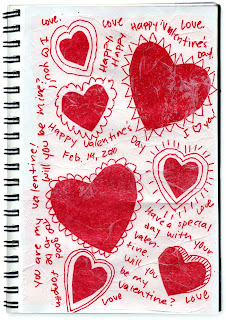 Love.
Love
Happy Valentine's
Day.
Love.
I ♡ you!
Happy,
Happy
Will you be mine?
Happy Valentine's Day
Feb. 14, 2011
I ♡ you!
You are my valentine!
Love
Have a special
day with your
Valen
tine.
Will you
be my
valentine?
Love
Love